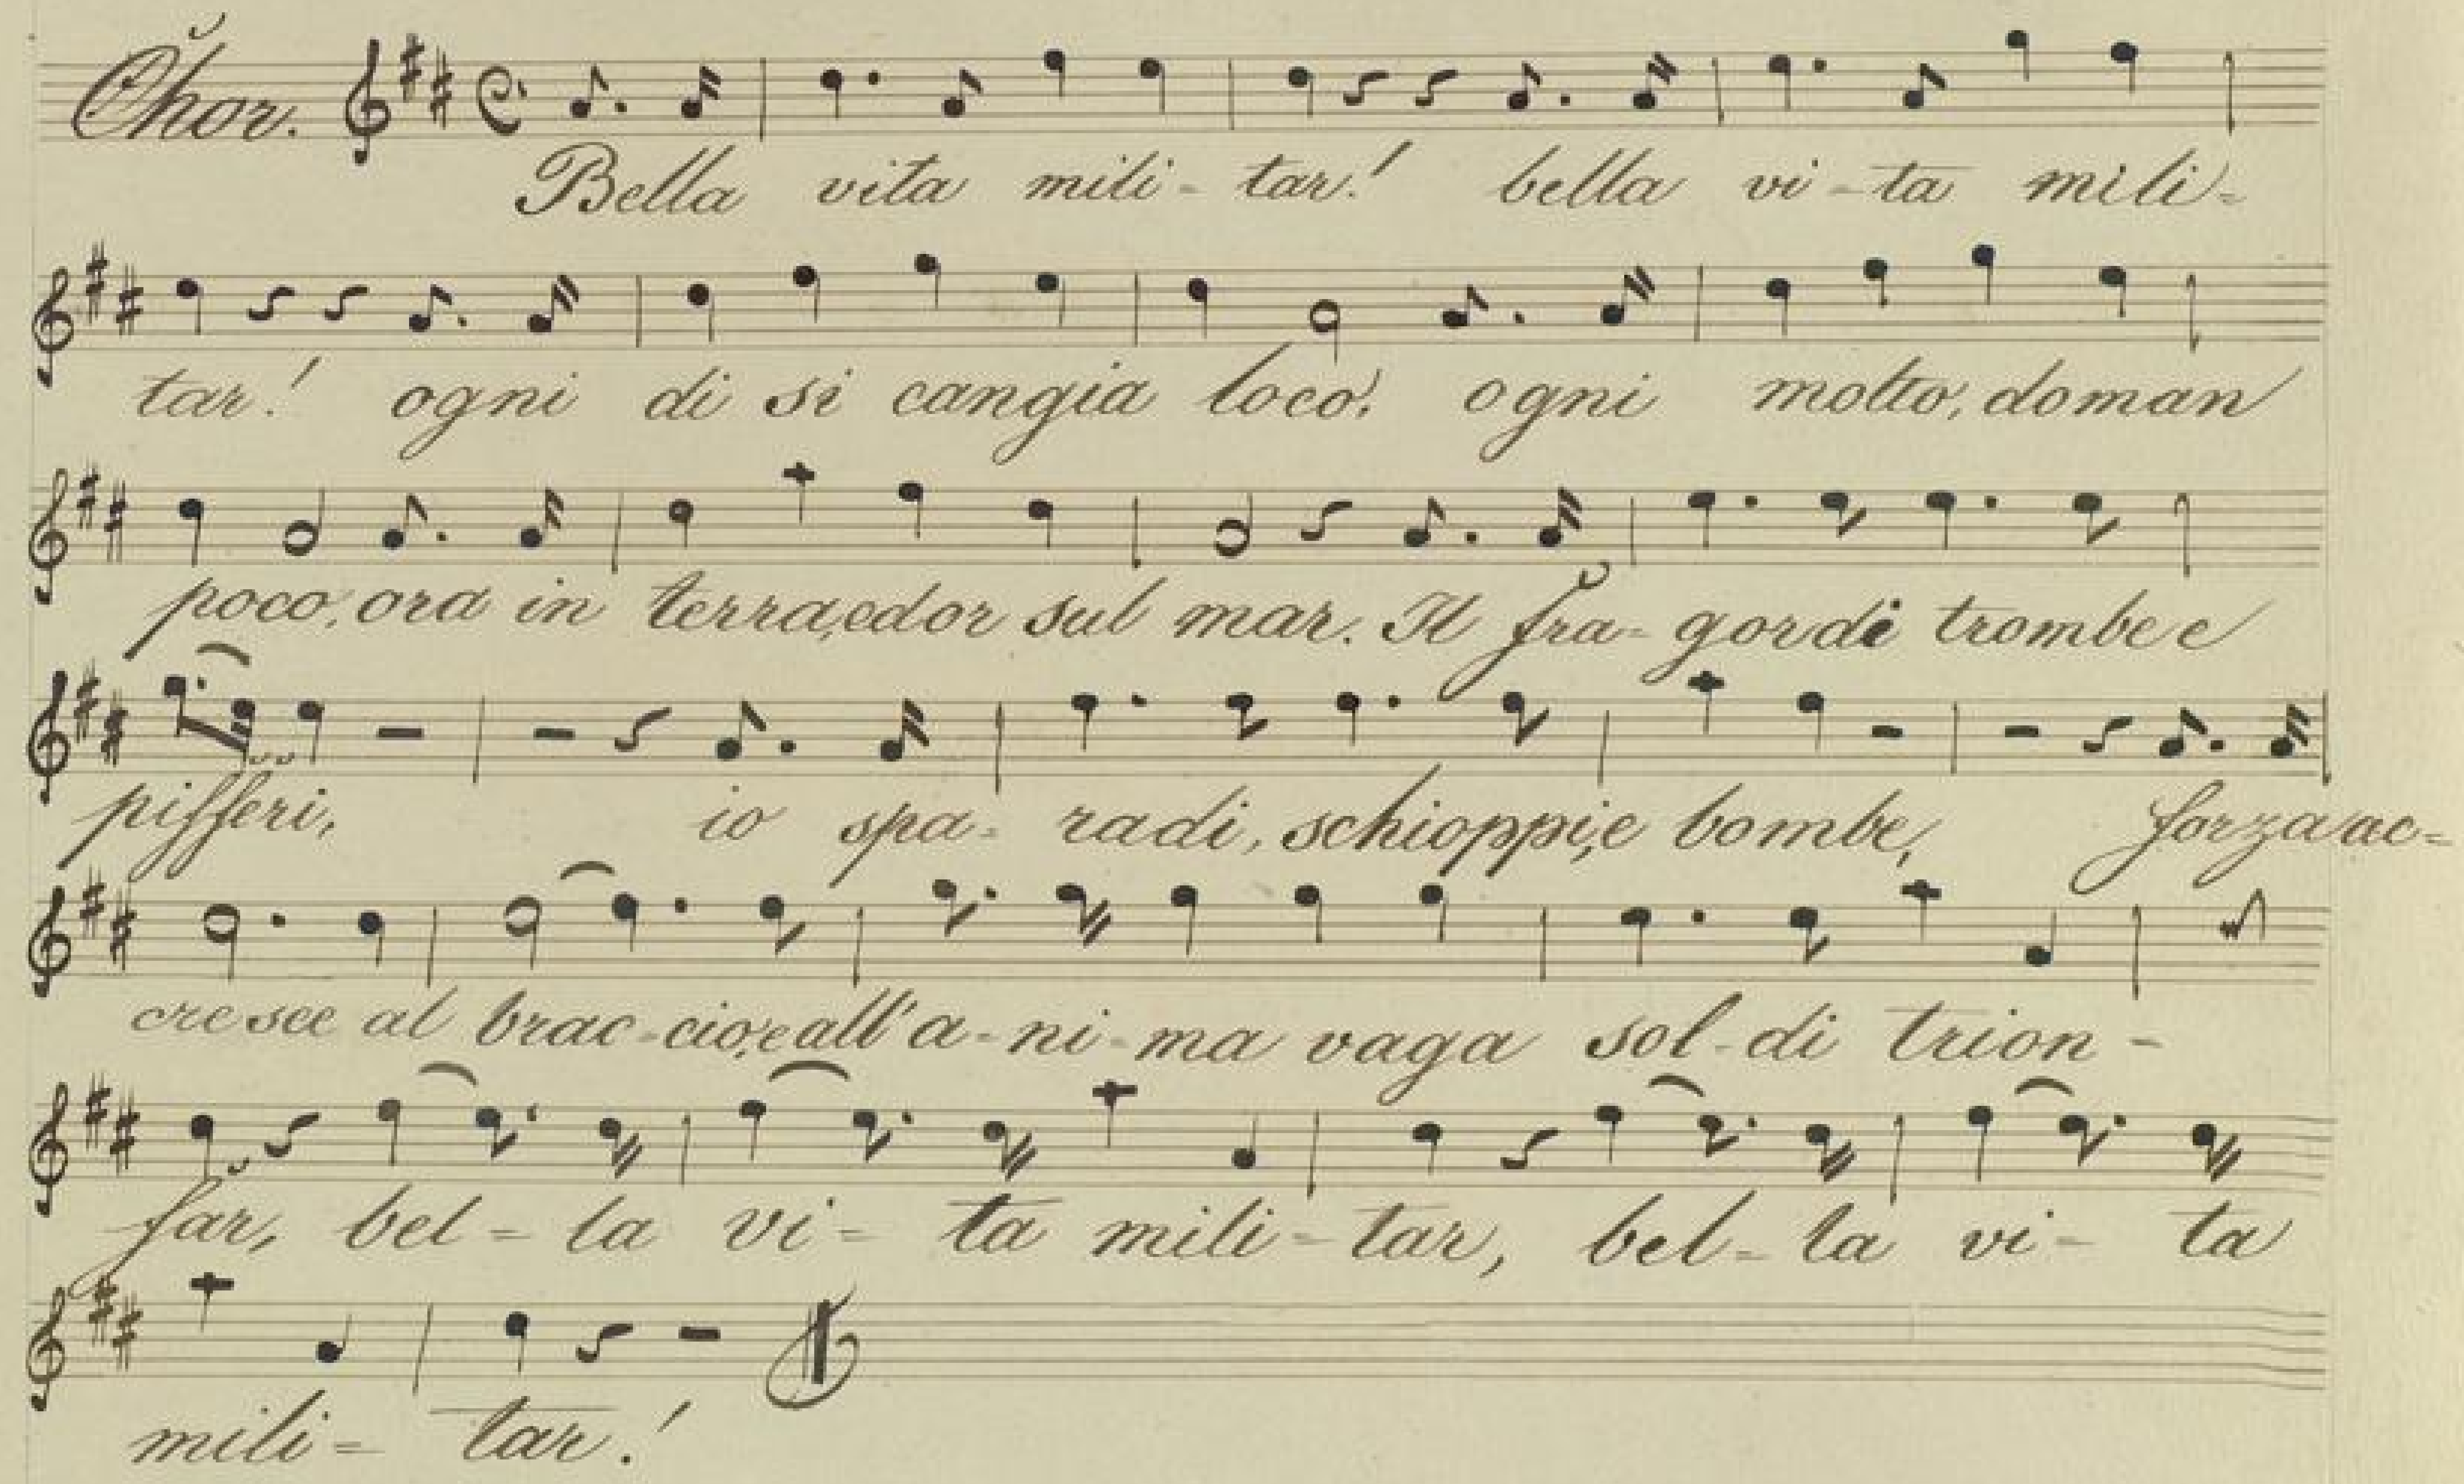 Chor.
Bella vita mili - tar! bella vi - ta mili -
tar! ogni di si cangia loco! ogni molto, doman
poco, ora in terra, ed or sul mar. Il fra - gor di trombe e
pifferi, io spa - radi, schioppi, e bombe, forza ac -
cresce al brac - cio, e all'a - ni - ma vaga sol - di trion -
far, bel - la vi - ta mili - tar, bel - la vi - ta
mili - tar!